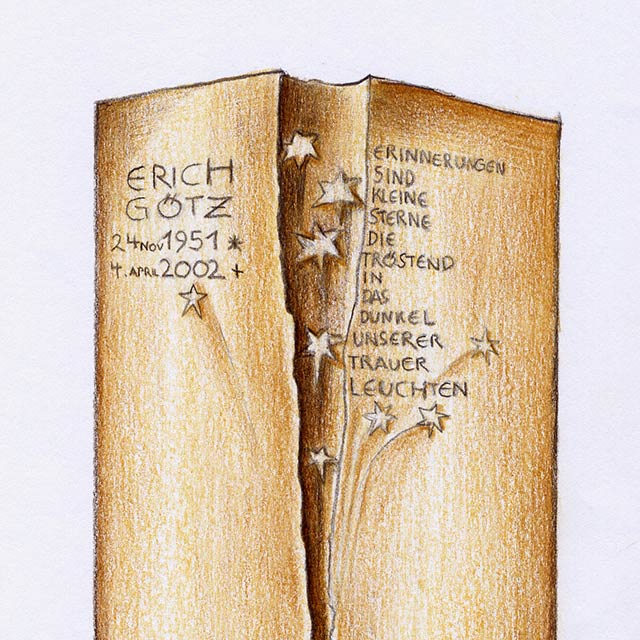 ERICH
GÖTZ
24 NOV 1951 *
4. APRIL 2002 +
ERINNERUNGEN
SIND
KLEINE
STERNE
DIE
TRÖSTEND
IN
DAS
DUNKEL
UNSERER
TRAUER
LEUCHTEN